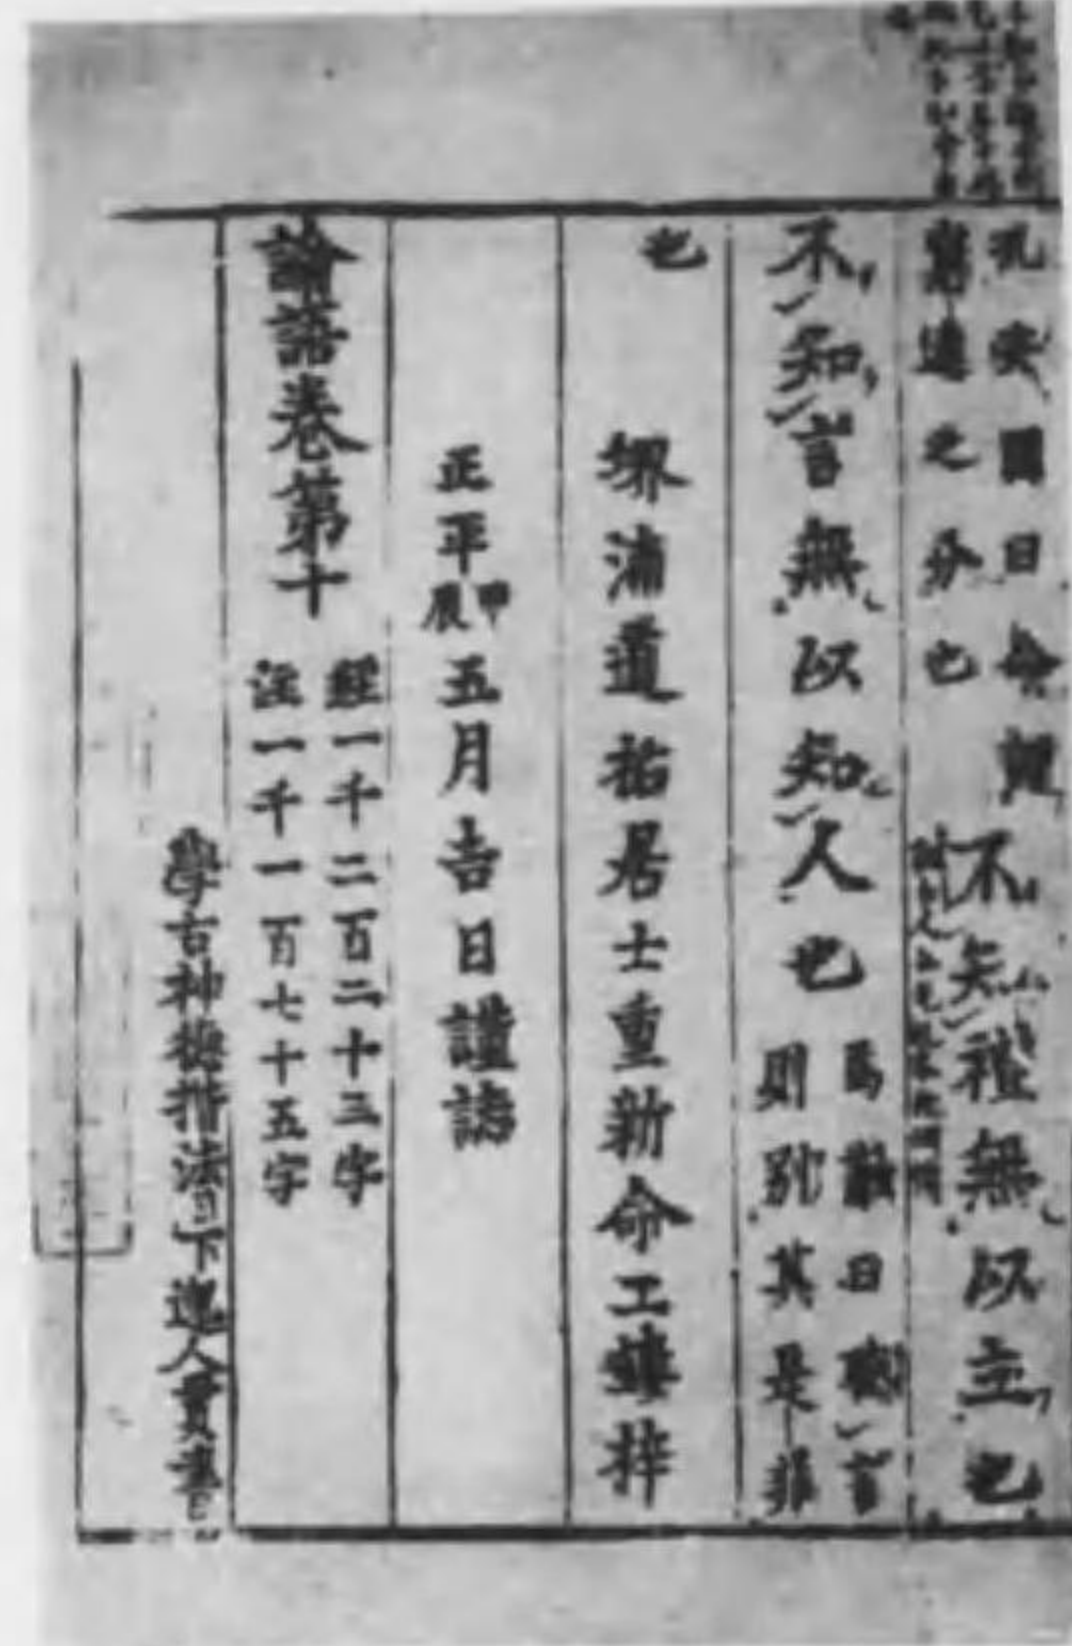 孔安國曰命謂
窮達之分也
不知禮無以立也
不知言無以知人也
馬融曰聽言
則別其是非
也
堺浦道祐居士重新命工鏤梓
正平甲辰五月吉日謹誌
論語卷第十
經一千二百二十三字
注一千一百七十五字
學古神德揩法下逸人貫書